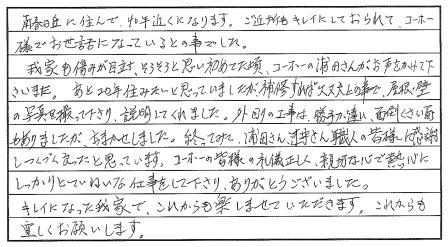 南春日丘に住んで、40年近くになります。ご近所もキレイにしておられて、コーホー
様でお世話になっているとの事でした。
我家も傷みが目立ち、そろそろと思い初めてた頃、コーホーの浦田さんがお声をかけて下
さいました。あと20年住みたいと思っていましたが補修すれば大丈夫との事で、屋根・壁
の写真を撮って下さり、説明してくれました。外回りの工事は、勝手が違い、面倒くさい面
もありましたが、おまかせしました。終ってみて、浦田さん、職人の皆様に感謝
しつつ良かったと思っています。コーホーの皆様の礼儀正しく、親切な心で熱心に
しっかりとていねいな仕事をして下さり、ありがとうございました。
キレイになった我家で、これからも楽しませていただきます。これからも
宜しくお願いします。